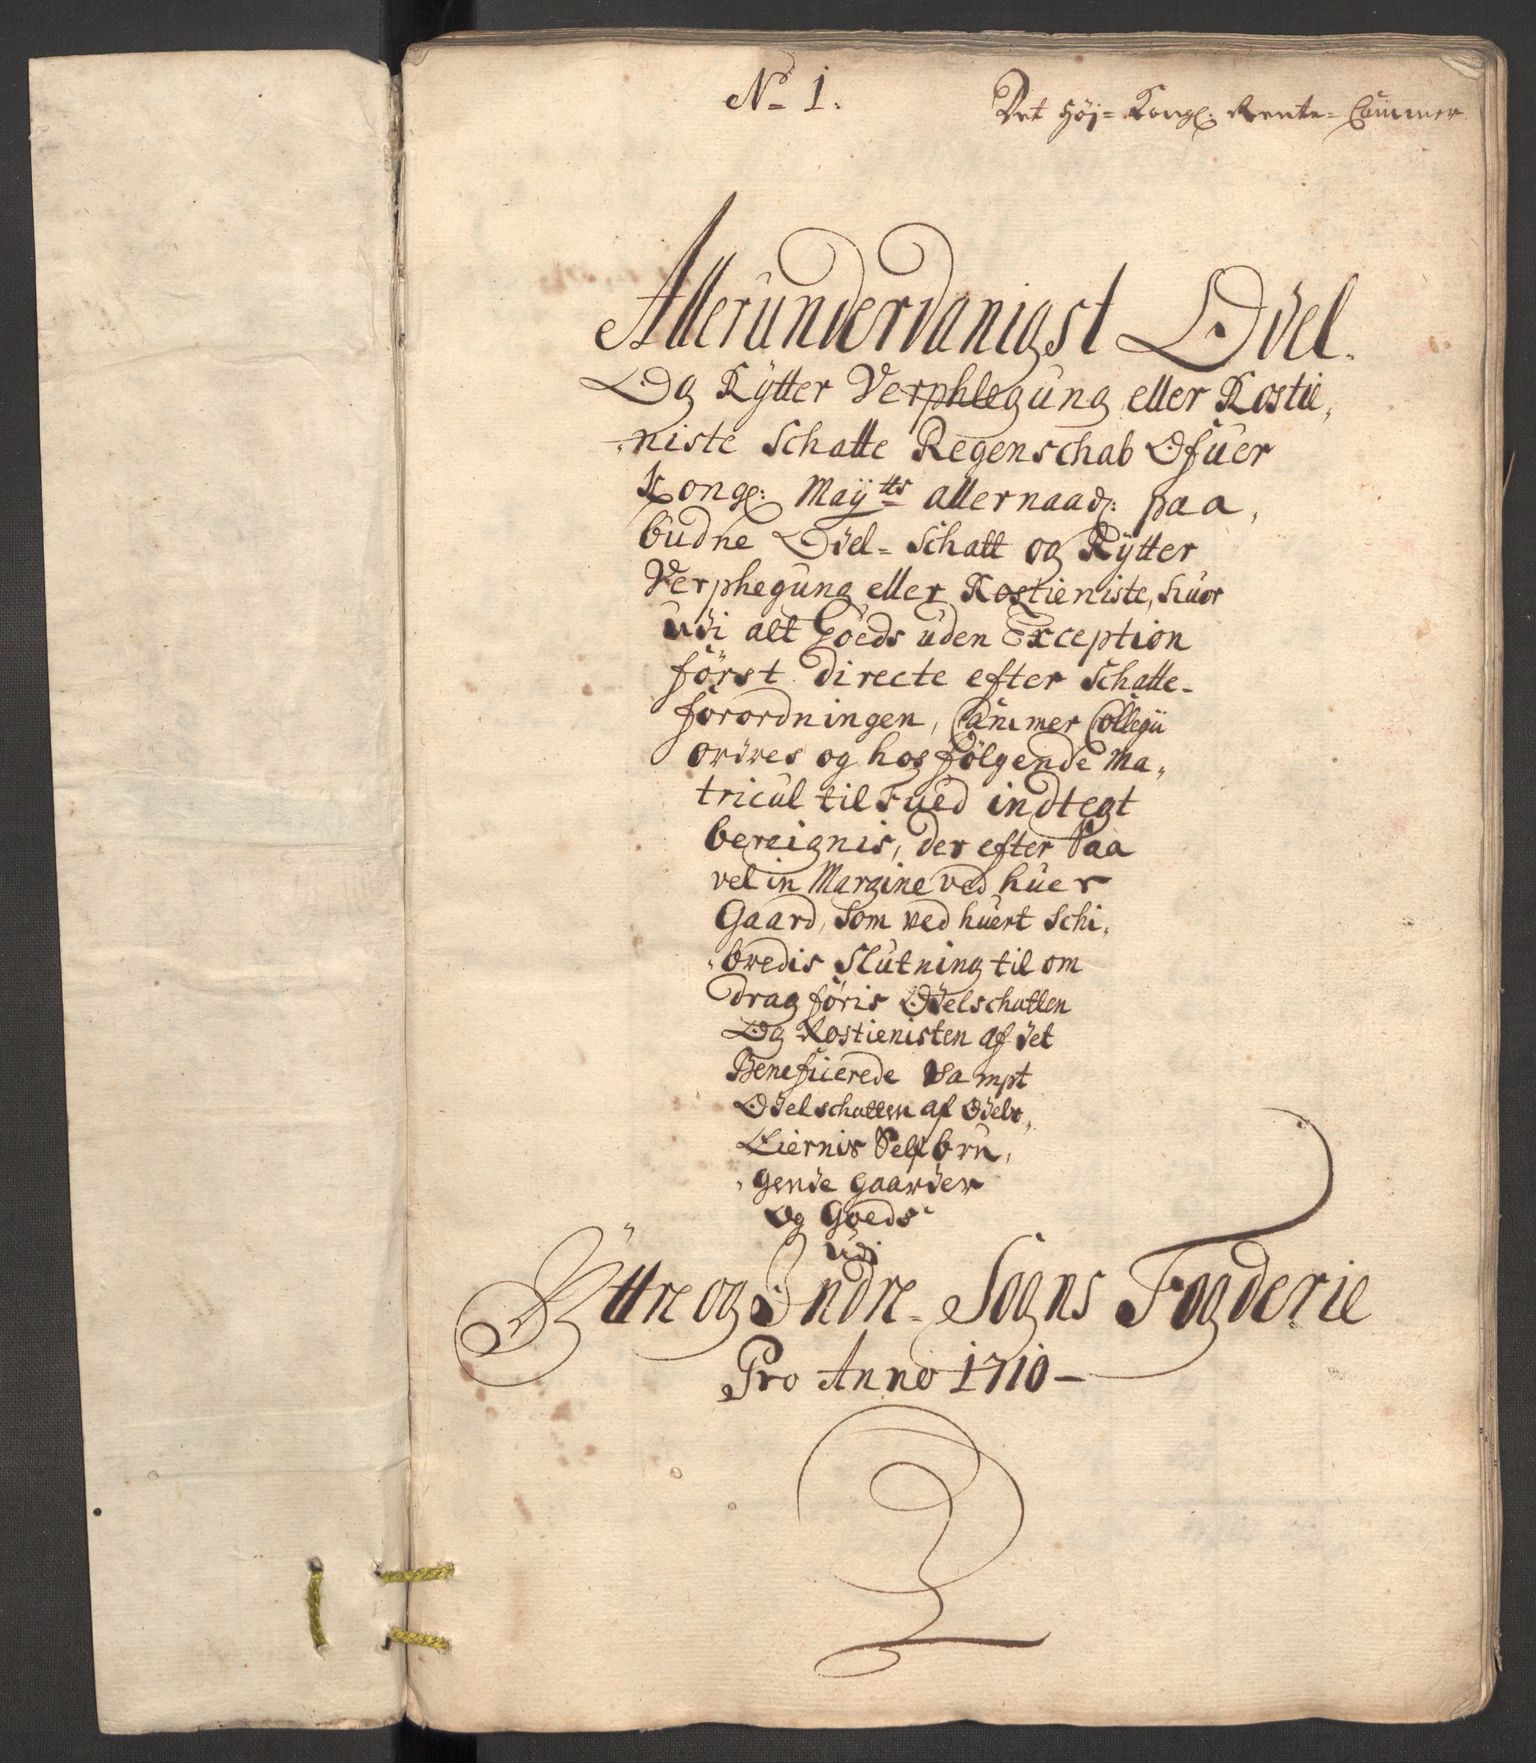 No 1.
Det Höj- Kongl: Rente- Cammer
Allerunderdanigst Odel.
Og Rÿtter Verphlegung eller Kostie,
,niste Schatte Regenschab Ofuer
Kongl: Maÿtts allernaad: paa,
budne Odel- Schatt og Rÿtter
Verphegung eller Kostieniste, huor
udi alt Goeds uden Exception
först directe efter Schatte-
forordningen, Cammer Collegii
ordres og hosfölgende Ma,
tricul tilsued indtegt
bereignis, der efter saa
vel in Margine ved huer
Gaard, som ved huert Schi,
,bredis Slutning til om
drag föris Odelschatten
Og Kostienisten af det
Beneficerede sampt
Odelschatten af Odels,
Eiernis Self bru,
,gende Gaarder
og Goeds
udi
Ÿttre og Indre- Sogns Fogderie
Pro Anno 1710-